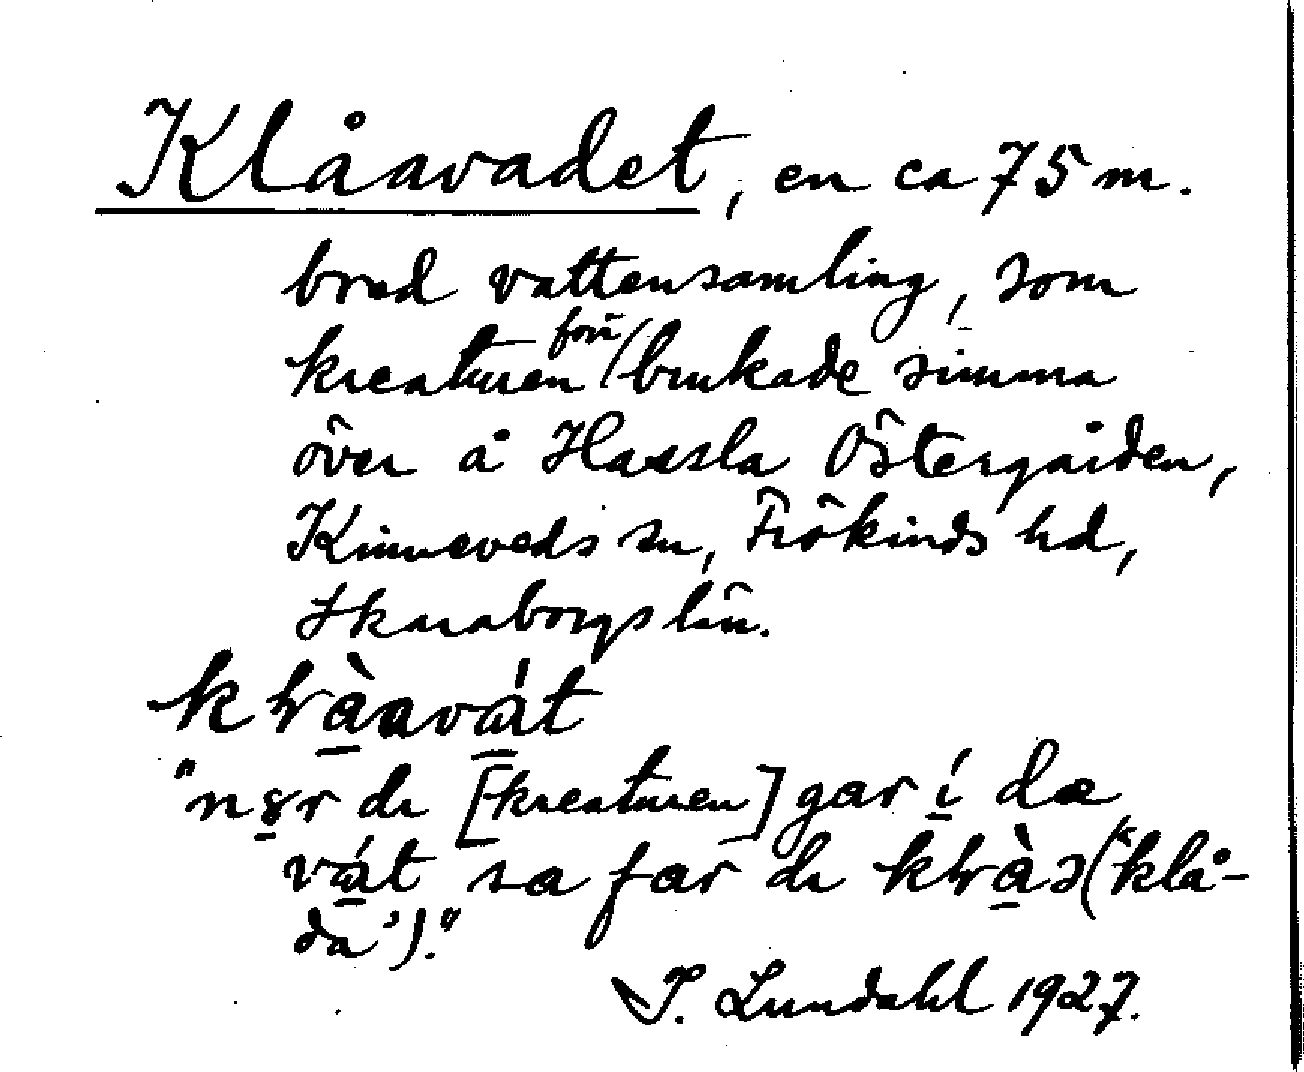 Klåavadet, en ca 75 m.
bred vattensamling, som
kreaturen förr brukade simma
över å Hassla Östergården,
Kinneveds sn, Frökinds hd,
Skaraborgs län.
"när de [kreaturen] gar i dæ
vát sa far de (klå-
da')."
I. Lundahl 1927.